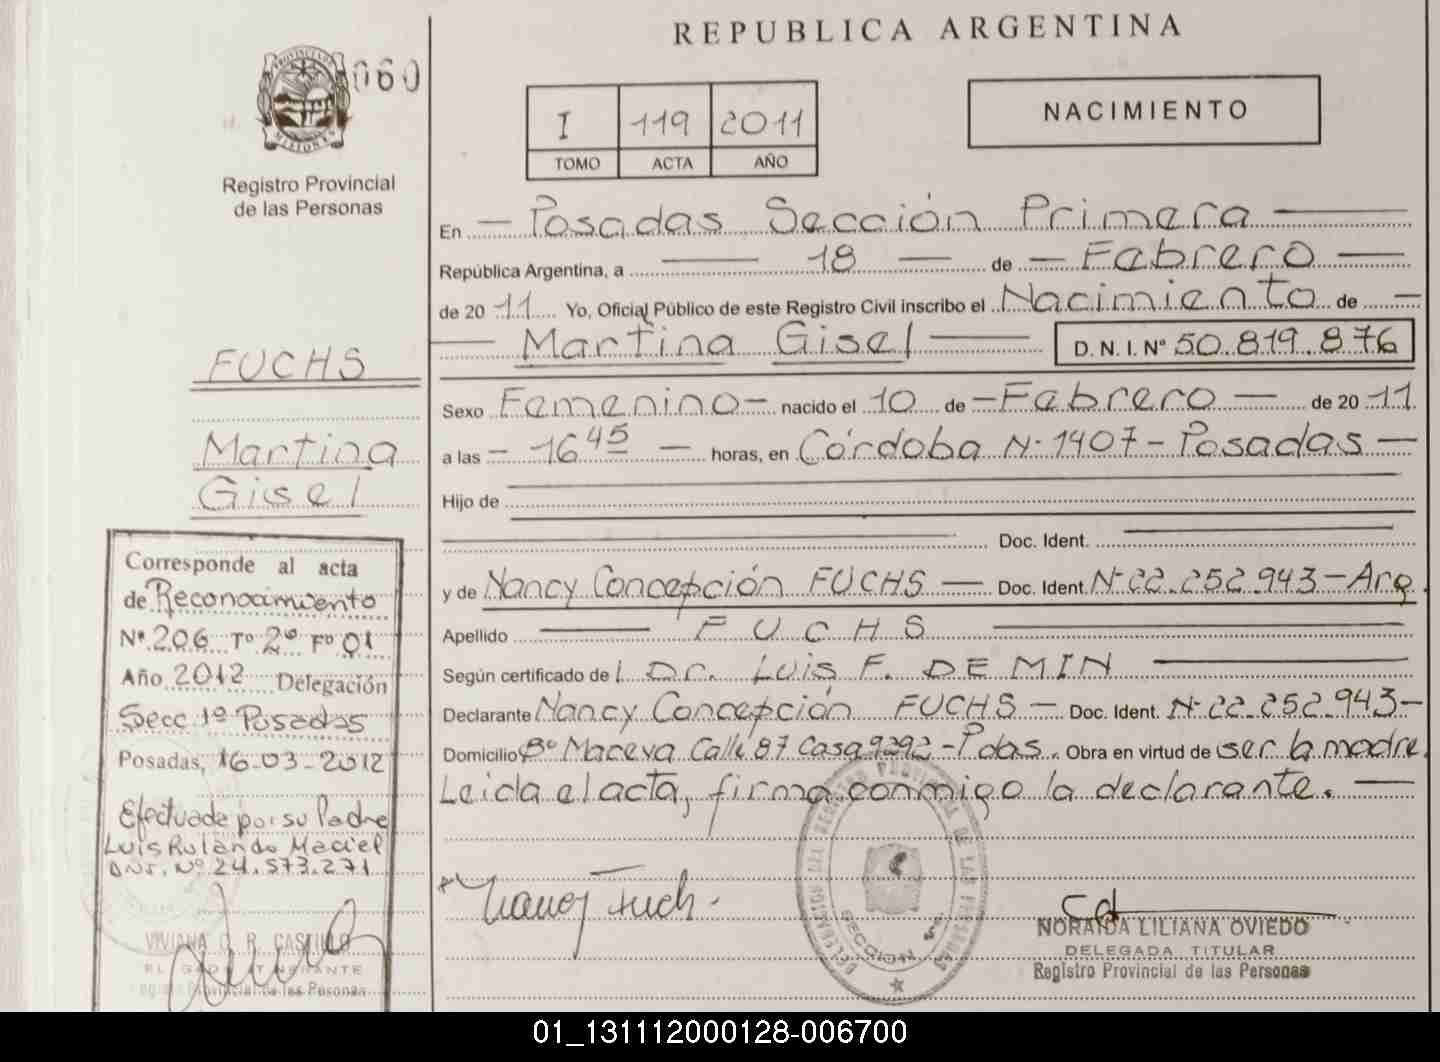 REPUBLICA ARGENTINA
060
I 119 2011
TOMO ACTA AÑO
NACIMIENTO
Registro Provincial
de las Personas
En Posadas Sección Primera
República Argentina, a 18 de Febrero
de 2011 Yo, Oficial Público de este Registro Civil inscribo el Nacimiento de
Martina Gisel D.N.I. Nº 50.819.876
Sexo Femenino nacido el 10 de Febrero de 2011
a las 16 45 horas, en Córdoba Nº 1407 - Posadas
Hijo de
Doc. Ident.
y de Nancy Concepción FUCHS Doc. Ident. Nº 22.252.943 - Arg.
Apellido FUCHS
Según certificado de l Dr. Luis F. DE MIN
Declarante Nancy Concepción FUCHS Doc. Ident. Nº 22.252.943
Domicilio Bº Calle 87 Casa 9292 - Pdas. Obra en virtud de ser la madre.
Leída el acta, firma conmigo la declarante.
FUCHS
Martina
Gisel
Corresponde al acta
de Reconocimiento
Nº 206 Tº 2º Fº 01
Año 2012 Delegación
Secc 1º Posadas
Posadas, 16-03-2012
Efectuada por su Padre
Luis Rolando Maciel
DNI. Nº 24.573.271
VIVIANA R. CASTILLO
Nancy Fuch
DELEGACION DEL REGISTRO PROVINCIAL DE LAS PERSONAS
SECCION
NORAIDA LILIANA OVIEDO
DELEGADA TITULAR
Registro Provincial de las Personas
01_131112000128-006700